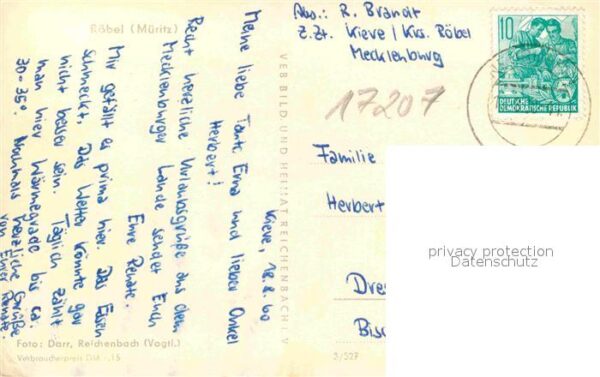 Röbel (Müritz)
Kieve, 18.8.60
Meine liebe Tante Erna und lieber Onkel
Herbert!
Recht herzliche Urlaubsgrüße aus dem
Mecklenburger Lande sendet Euch
Eure Renate.
Mir gefällt es prima hier. Das Essen
schmeckt, Das Wetter könnte gar
nicht besser sein. Täglich zählt
man hier Wärmegrade bis ca.
30-35°. Nochmals herzliche Grüße
von Eurer Renate
Foto: Darr, Reichenbach (Vogtl.)
Verbraucherpreis DM -,15
VEB BILD UND HEIMAT REICHENBACH I. V
3/527
Abs.: R. Brandt
z.Zt. Kieve / Krs. Röbel
Mecklenburg
17207
10
5
DEUTSCHE
DEMOKRATISCHE REPUBLIK
Familie
Herbert
Dre
Bisc
privacy protection
Datenschutz